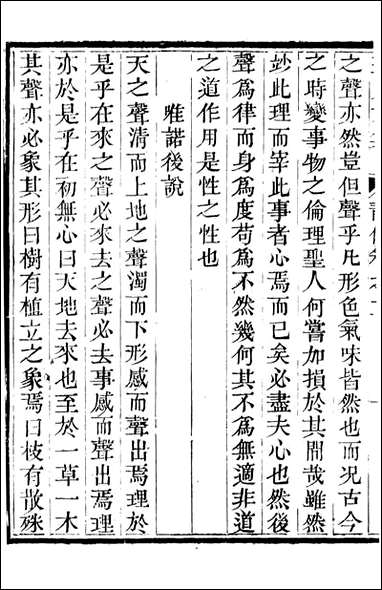 之聲亦然豈但聲乎凡形色氣味皆然也而況古今
之時變事物之倫理聖人何嘗加損於其間哉雖然
妙此理而宰此事者心焉而已矣必盡夫心也然後
聲爲律而身爲度苟爲不然幾何其不爲無適非道
之道作用是性之性也
唯諾後說
天之聲清而上地之聲濁而下形感而聲出焉理於
是乎在來之聲必來去之聲必去事感而聲出焉理
亦於是乎在初無心曰天地去來也至於一草一木
其聲亦必象其形曰樹有植立之象焉曰枝有散殊